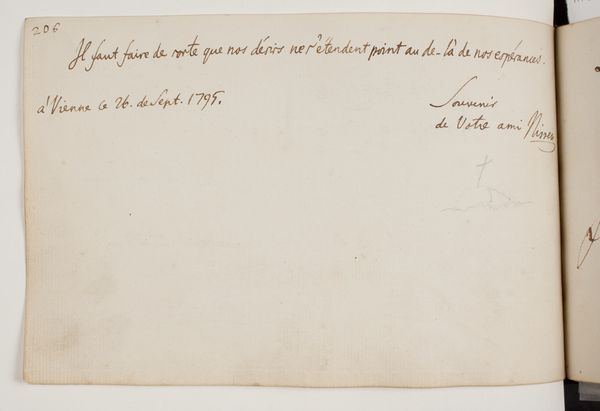 206
Il faut faire de sorte que nos désirs ne s'étendent point au de-là de nos espérances.
à Vienne ce 26. de Sept. 1795.
Souvenir
de Votre ami Nissen